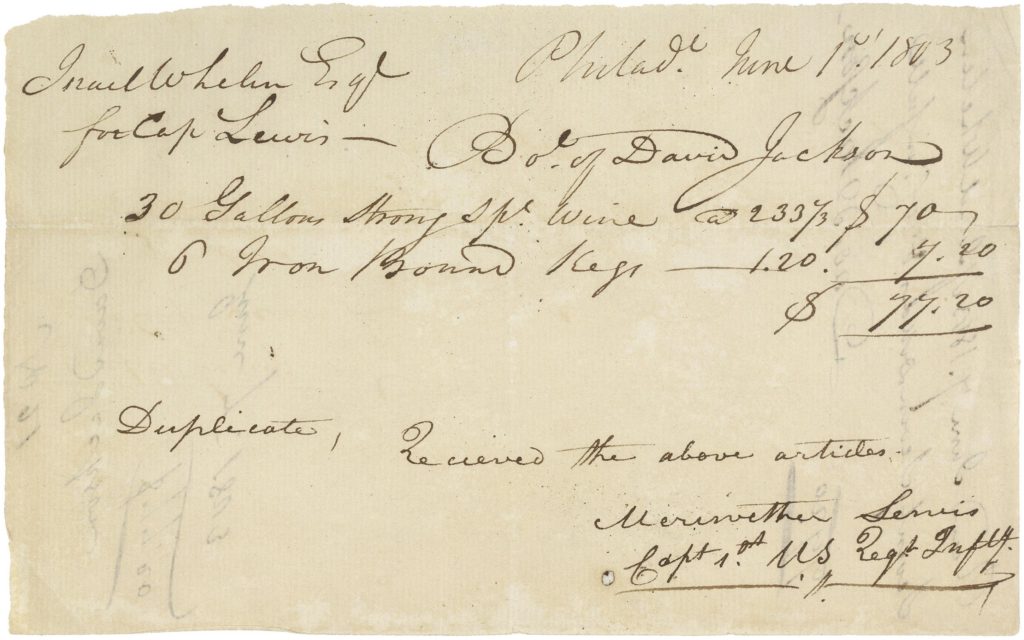 Philad.ª June 1st 1803
Israel Whelen Esqr
for Cap Lewis —
Bo.t of David Jackson
30 Gallons Strong Spt. Wine @ 233⅓ $ 70
6 Iron Bound Kegs — 1.20. 7.20
$ 77.20
Duplicate,
Recieved the above articles.
Meriwether Lewis
Capt 1.st US Regt Infty.